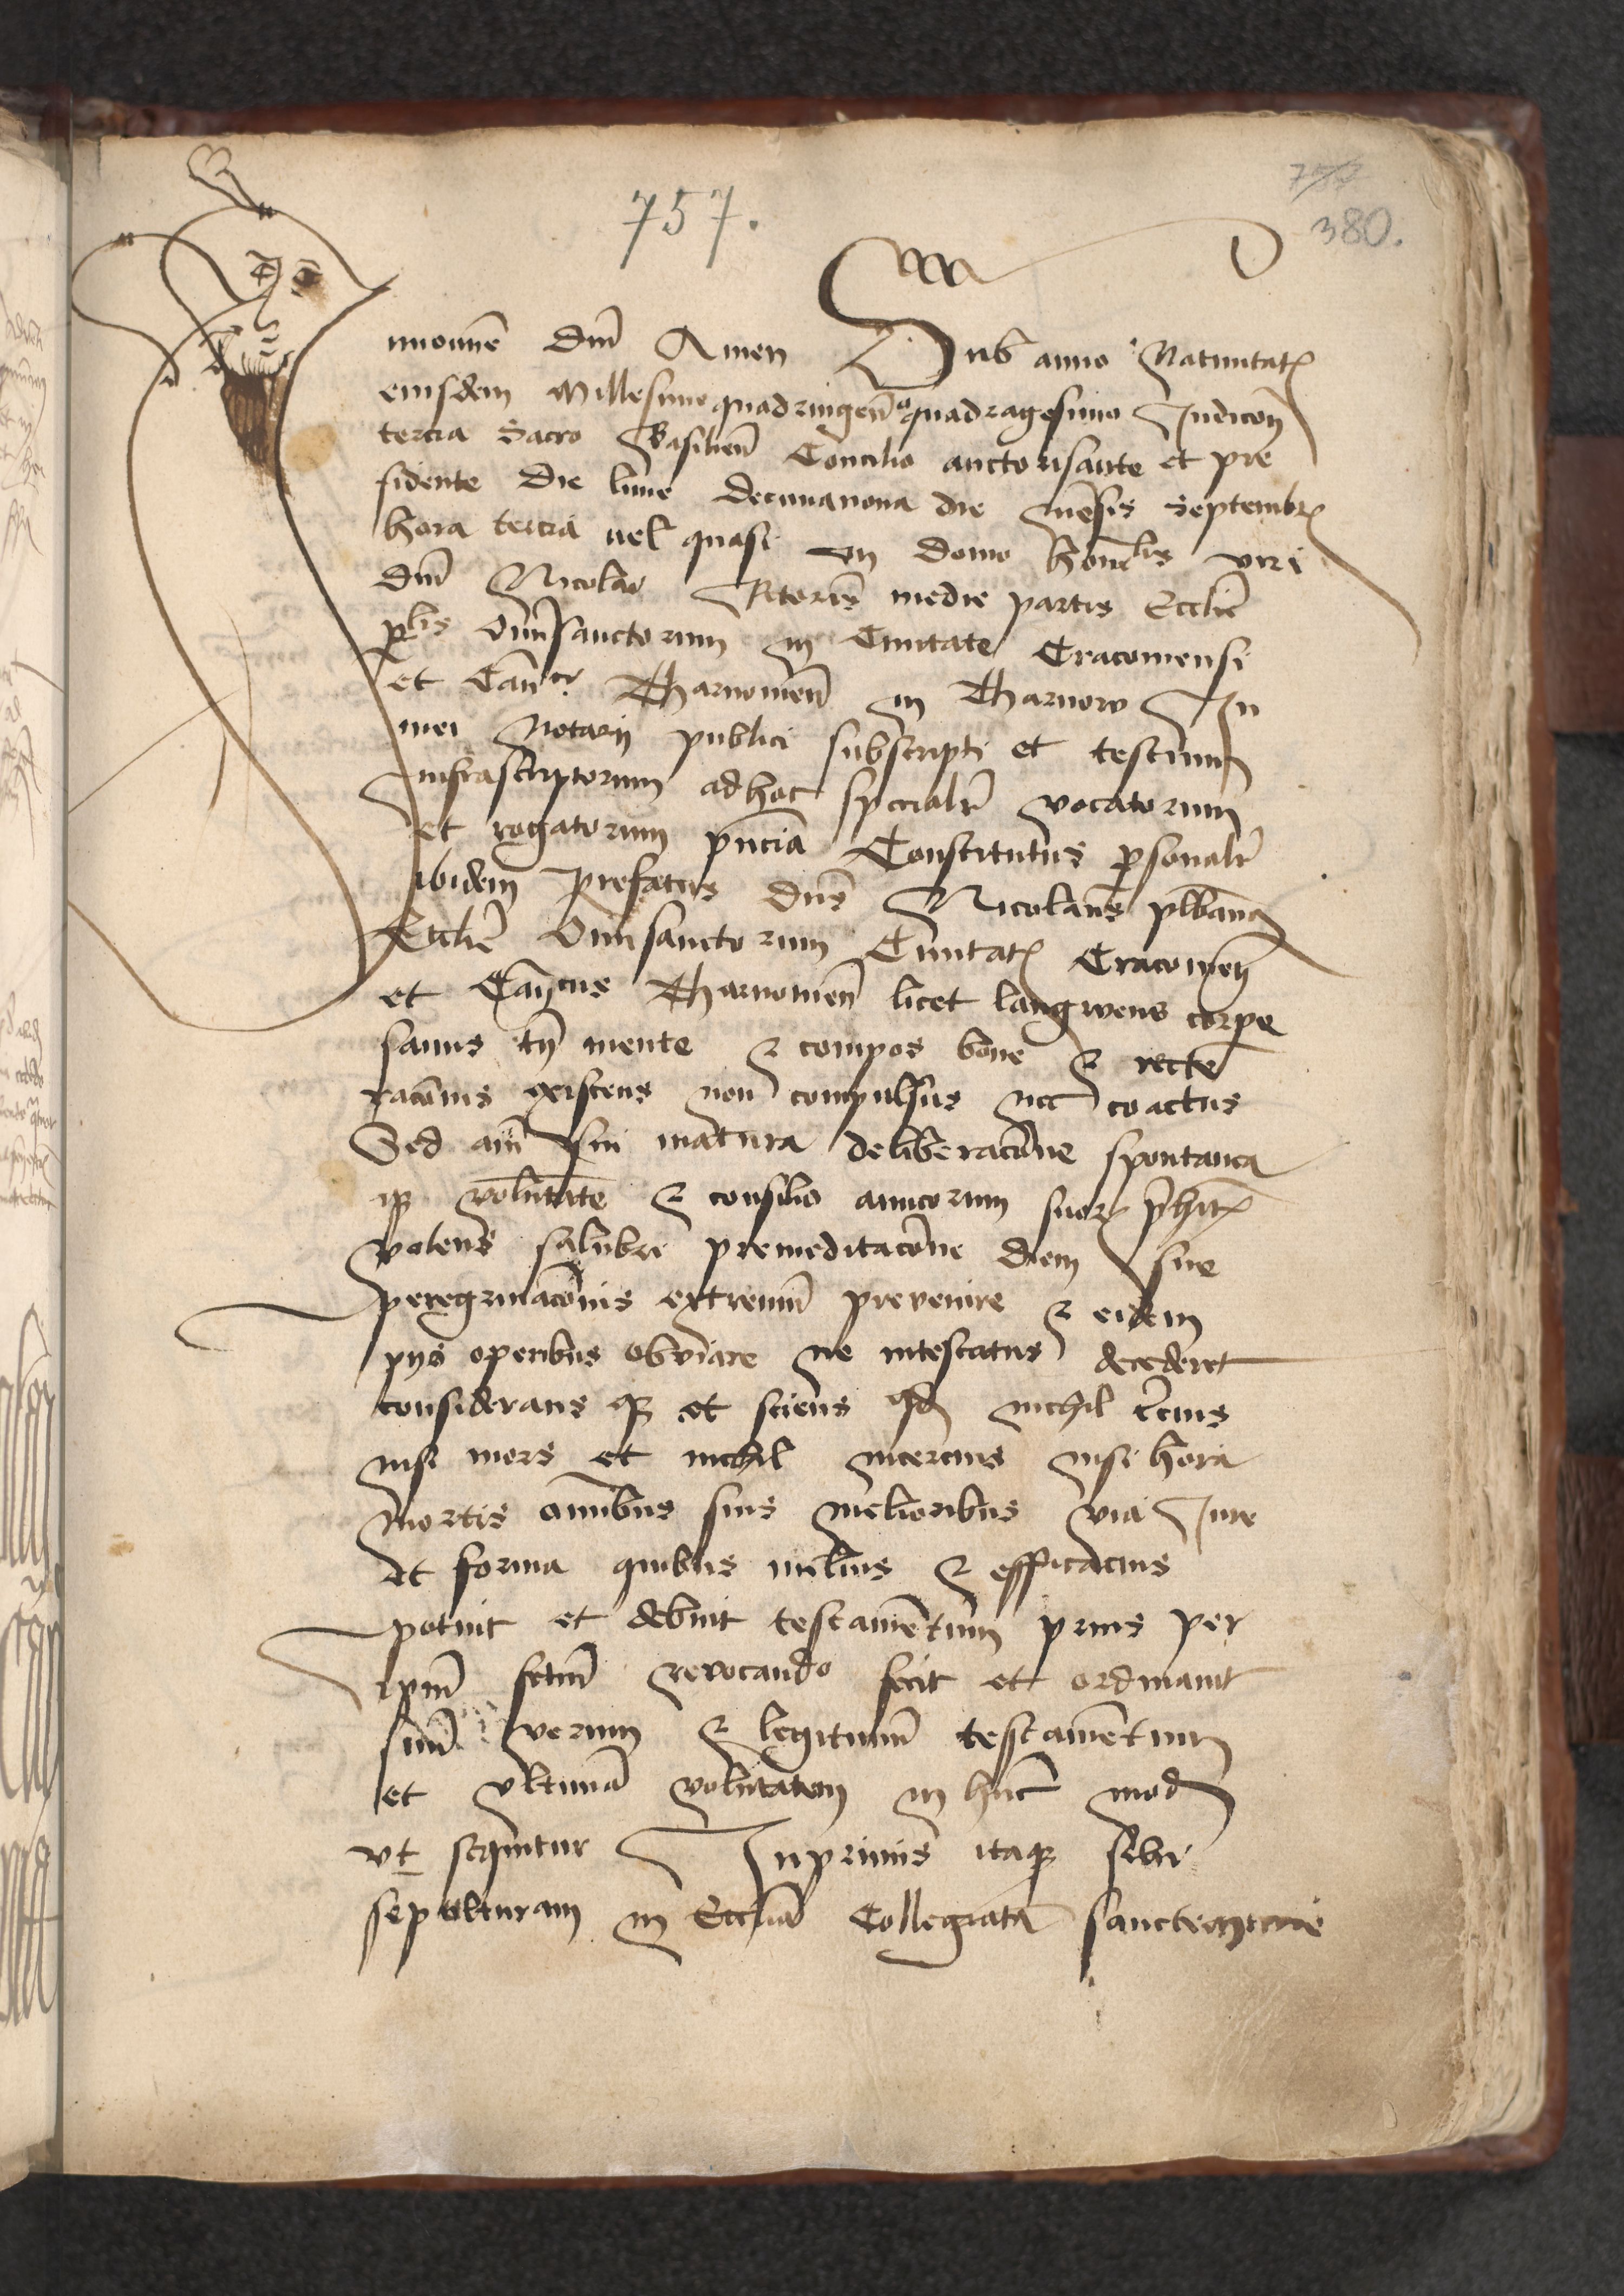 757.
757
380.
In nomine dni Amen Sub anno Natiuitatꝭ
eiusdem Millesimo quadringeno quadragesimo Indicoñ
tercia Sacro Basilieñ Concilio auctorisante et pre
sidente die lune decimanona die mēsis Septembrꝭ
hora tercia uel quasi in domo honlis viri
dni Nicolai Rctoris medie partis Ecclie
plis Omnisanctorum in Ciuitate Cracouiensi
et Canci Tharnouień in Tharnow In
mei Notarij publici subscripti et testium
Infrascriptorum adhoc spcialr vocatorum
et rogatorum pncia Constitutus psonalr
ibidem prefatus dns Nicolaus plbanꝰ
Ecclie Omnisanctorum Ciuitatꝭ Cracouień
et Cancus Tharnouień licet langwens corpe
sanus tn mente et compos bone et recte
racōnis existens non compulsus nec coactus
Sed aim sui matura deliberacōne spontanea
qꝫ volūtate et consilio amicorum suorꝝ phitꝭ
volens salubri premeditacōne diem sue
peregrinacōnis extremū prevenire et eidem
pijs operibus obviare ne intestatus decederet
considerans qꝫ et sciens qd nichil cercius
nisi mors et nichil incercius nisi hora
mortis omnibus suis melioribus via Jure
et forma quibus melius et efficacius
potuit et debuit testamētum prius per
ipm fctum revocando fecit et ordinauit
suū verum et legitimū testamētum
et vltimā volūtatem in hūc modū
vt sequitur Inprimis itaqꝫ sibi
sepulturam in Ecclia Collegiata sancte